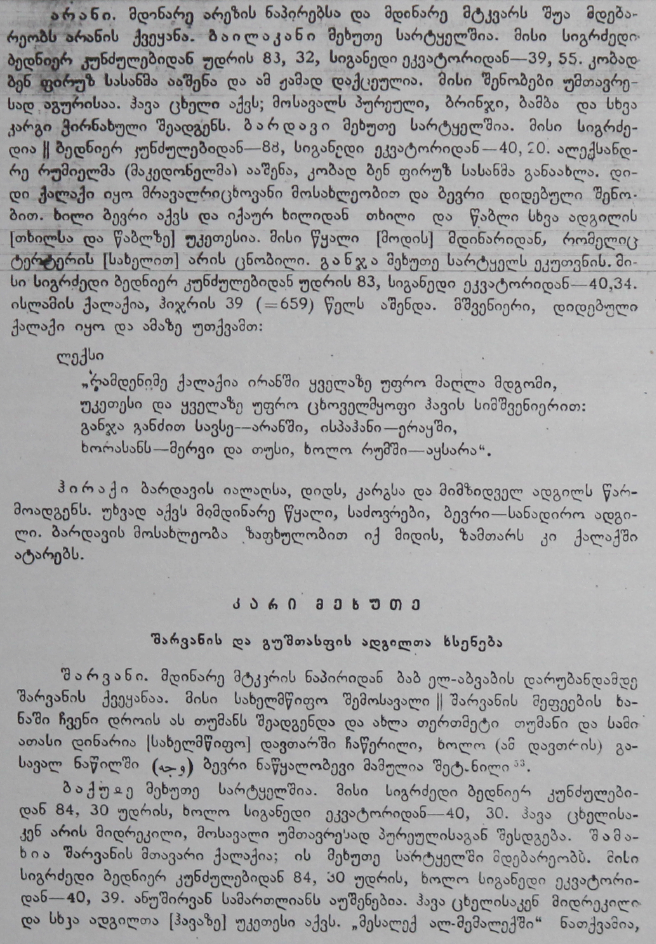 არანი. მდინარე არეზის ნაპირებსა და მდინარე მტკვარს შუა მდება-
რეობს არანის ქვეყანა. ბაილაკანი მეხუთე სარტყელშია. მისი სიგრძედი
ბედნიერ კუნძულებიდან უდრის 83, 32, სიგანედი ეკვატორიდან—39, 55. კობად
ბენ ფირუზ სასანმა ააშენა და ამ ჟამად დაქცეულია. მისი შენობები უმთავრე-
სად აგურისაა. ჰავა ცხელი აქვს; მოსავალს პურეული, ბრინჯი, ბამბა და სხვა
კარგი ჭირნახული შეადგენს. ბარდავი მეხუთე სარტყელშია. მისი სიგრძე-
დია || ბედნიერ კუნძულებიდან—88, სიგანედი ეკვატორიდან—40, 20. ალექსანდ-
რე რუმიელმა (მაკედონელმა) ააშენა, კობად ბენ ფირუზ სასანმა განაახლა. დი-
დი ქალაქი იყო მრავალრიცხოვანი მოსახლეობით და ბევრი დიდებული შენო-
ბით. ხილი ბევრი აქვს და იქაურ ხილიდან თხილი და წაბლი სხვა ადგილის
[თხილსა და წაბლზე] უკეთესია. მისი წყალი [მოდის] მდინარიდან, რომელიც
ტერტერის [სახელით] არის ცნობილი. განჯა მეხუთე სარტყელს ეკუთვნის. მი-
სი სიგრძედი ბედნიერ კუნძულებიდან უდრის 83, სიგანედი ეკვატორიდან—40,34.
ისლამის ქალაქია, ჰიჯრის 39 (=659) წელს აშენდა. მშვენიერი, დიდებული
ქალაქი იყო და ამაზე უთქვამთ:
ლექსი
„რამდენიმე ქალაქია ირანში ყველაზე უფრო მაღლა მდგომი,
უკეთესი და ყველაზე უფრო ცხოველმყოფი ჰავის სიმშვენიერით:
განჯა განძით სავსე—არანში, ისპაჰანი—ერაყში,
ხორასანს—მერვი და თუსი, ხოლო რუმში—აყსარა“.
ჰირაქი ბარდავის იალაღსა, დიდს, კარგსა და მიმზიდველ ადგილს წარ-
მოადგენს. უხვად აქვს მიმდინარე წყალი, საძოვრები, ბევრი—სანადირო ადგი-
ლი. ბარდავის მოსახლეობა ზაფხულობით იქ მიდის, ზამთარს კი ქალაქში
ატარებს.
კარი მეხუთე
შარვანის და გუშთასფის ადგილთა ხსენება
შარვანი. მდინარე მტკვრის ნაპირიდან ბაბ ელ-აბვაბის დარუბანდამდე
შარვანის ქვეყანაა. მისი სახელმწიფო შემოსავალი || შარვანის მეფეების ხა-
ნაში ჩვენი დროის ას თუმანს შეადგენდა და ახლა თერთმეტი თუმანი და სამი
ათასი დინარია [სახელმწიფო] დავთარში ჩაწერილი, ხოლო (ამ დავთრის) გა-
სავალ ნაწილში (وجه) ბევრი ნაწყალობევი მამულია 53.
ბაქუჲე მეხუთე სარტყელშია. მისი სიგრძედი ბედნიერ კუნძულები-
დან 84, 30 უდრის, ხოლო სიგანედი ეკვატორიდან—40, 30. ჰავა ცხელისა-
კენ არის მიდრეკილი, მოსავალი უმთავრესად პურეულისაგან შესდგება. შამა-
ხია შარვანის მთავარი ქალაქია; ის მეხუთე სარტყელში მდებარეობს. მისი
სიგრძედი ბედნიერ კუნძულებიდან 84, 30 უდრის, ხოლო სიგანედი ეკვატორი-
დან—40, 39. ანუშირვან სამართლიანს აუშენებია. ჰავა ცხელისაკენ მიდრეკილი
და სხვა ადგილთა [ჰავაზე] უკეთესი აქვს. „მესალექ ალ-მემალექში“ ნათქვამია,